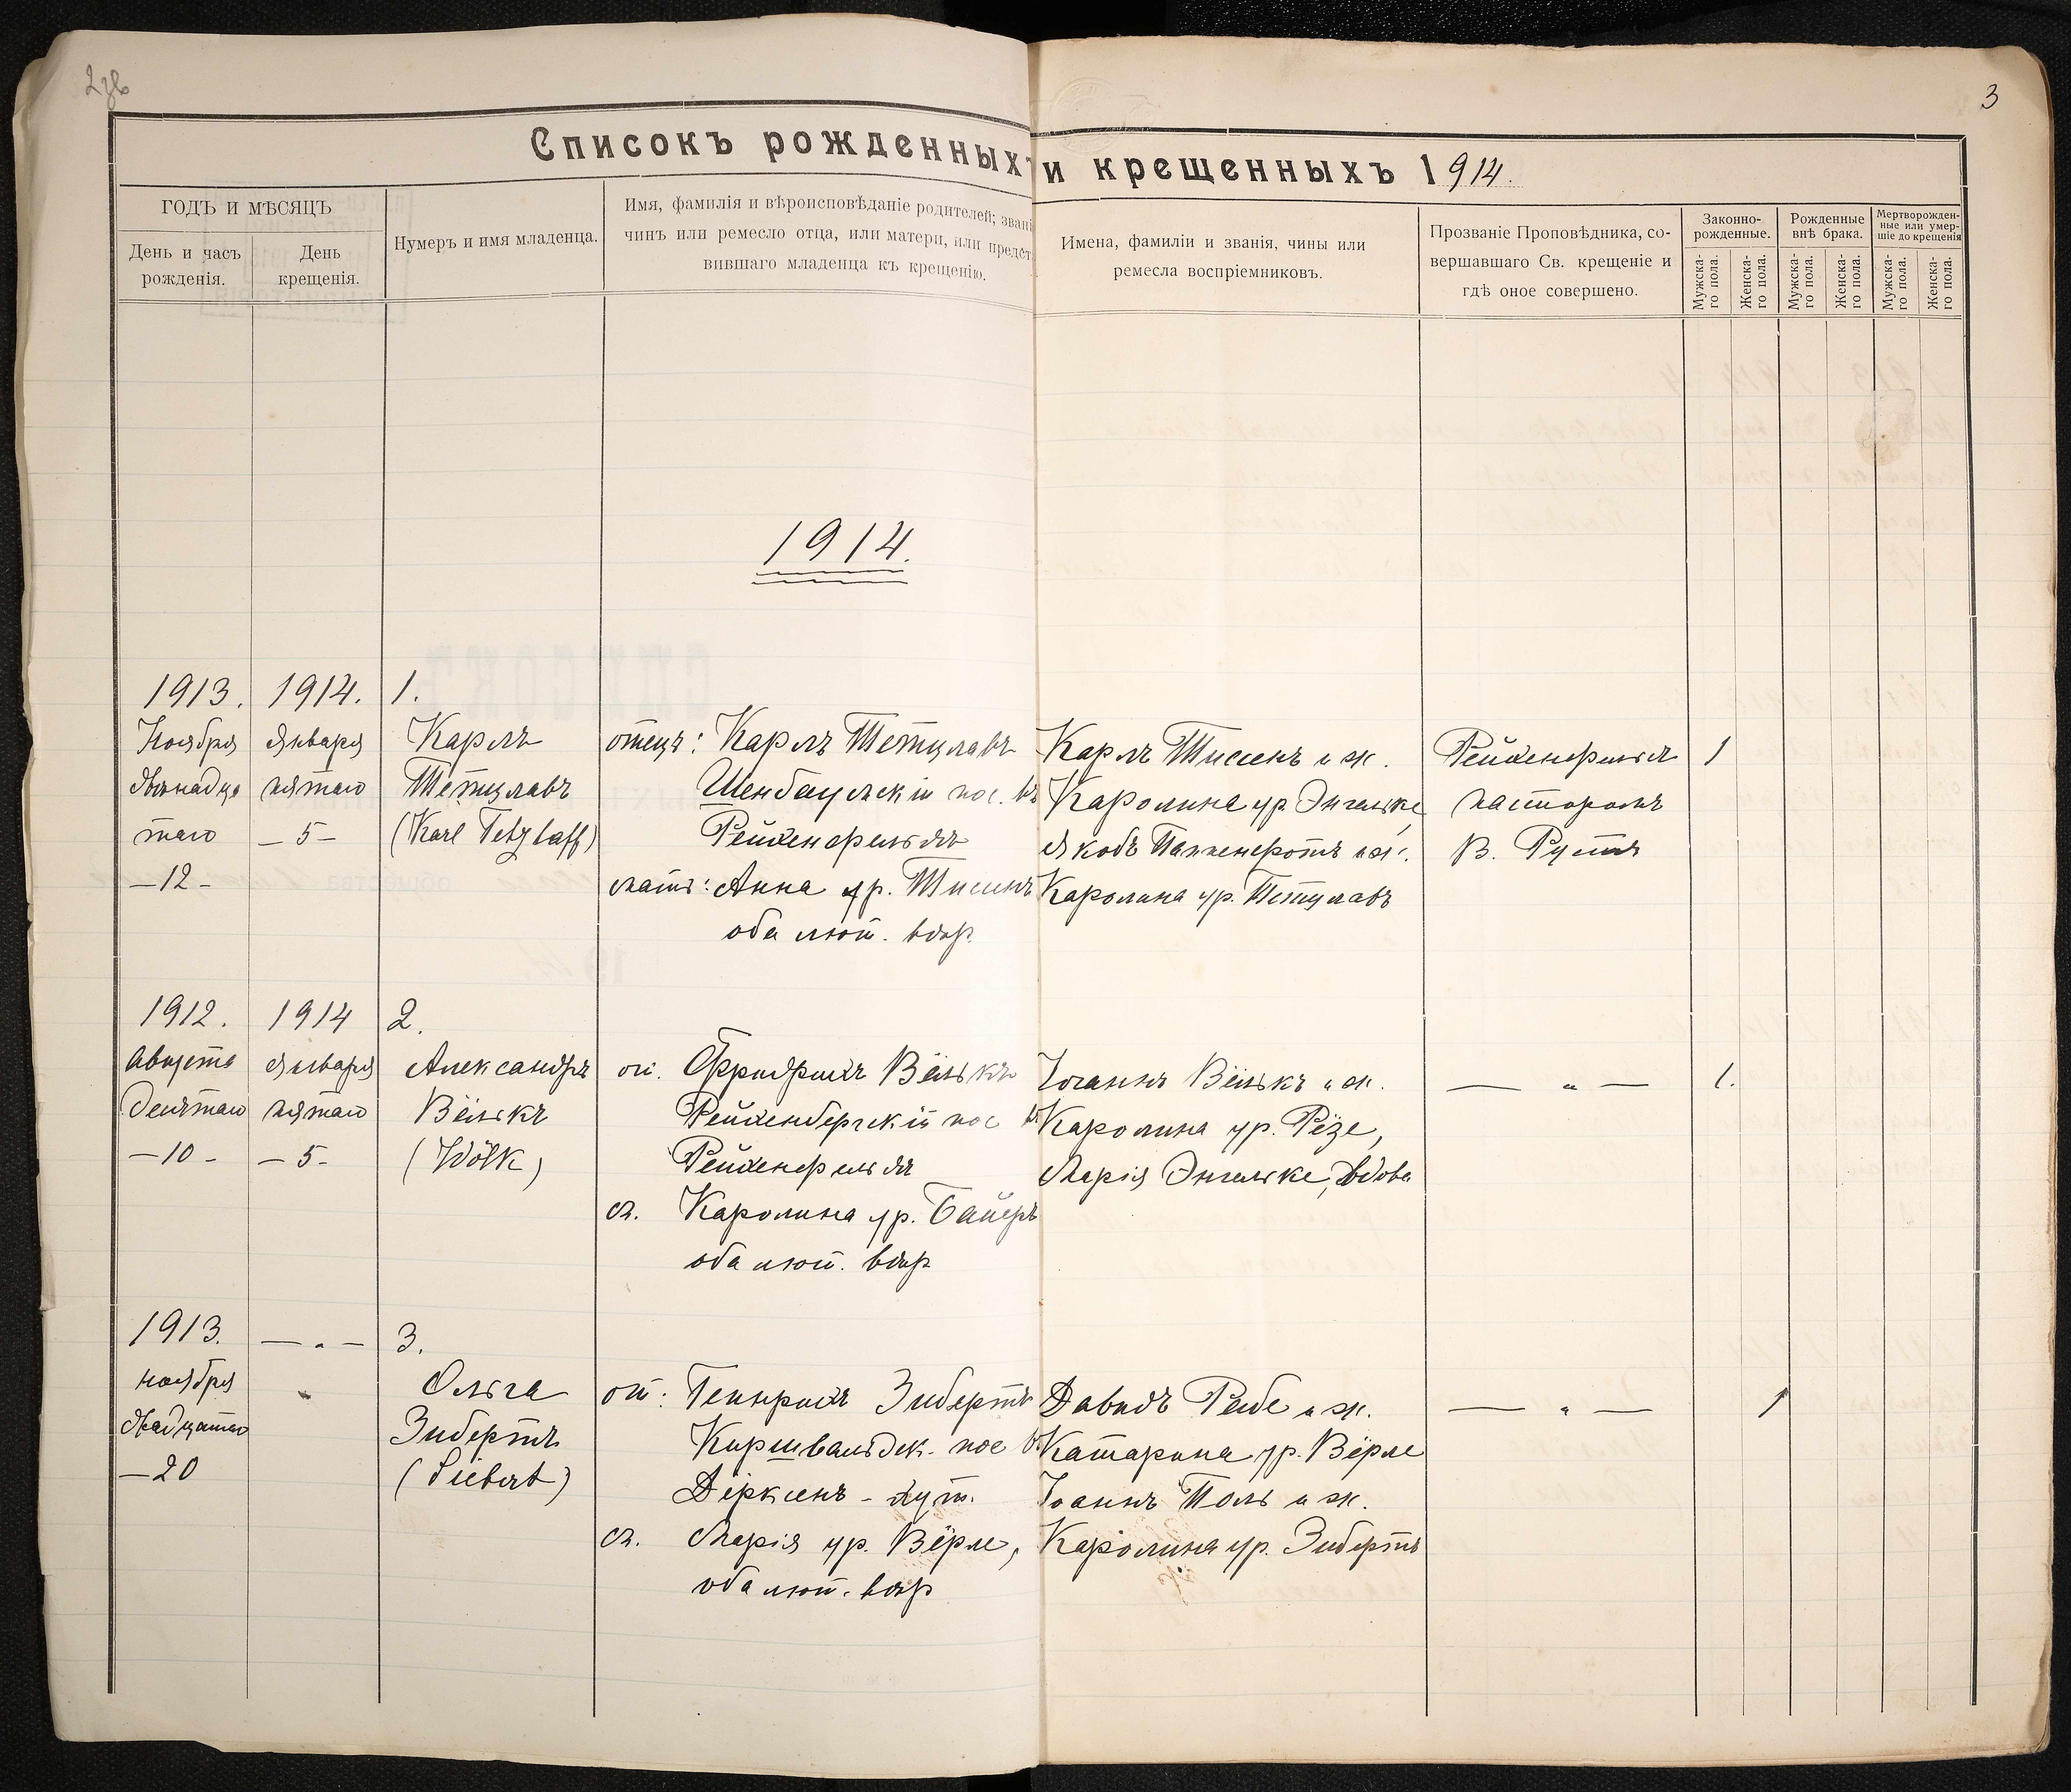 2об
3
Списокъ рожденныхъ и крещенныхъ 1914.
ГОДЪ И МѢСЯЦЪ
День и часъ
рожденія.
День
крещенія.
Нумеръ и имя младенца.
Имя, фамилія и вѣроисповѣданіе родителей; звані
чинъ или ремесло отца, или матери, или предст
вившаго младенца къ крещенію.
Имена, фамиліи и званія, чины или
ремесла воспріемниковъ.
Прозваніе Проповѣдника, со-
вершавшаго Св. крещеніе и
гдѣ оное совершено.
Законно-
рожденные.
Рожденные
внѣ брака.
Мертворожден-
ные или умер-
шіе до крещенія
Мужска-
го пола.
Женска-
го пола.
Мужска-
го пола.
Женска-
го пола.
Мужска-
го пола.
Женска-
го пола.
1914.
1913.
Ноября
двѣнадца
таго
—12—
1914.
Января
пятаго
—5—
1.
Карлъ
Тетцлавъ
(Karl Tetzlaff)
отецъ: Карлъ Тетцлавъ
Шенбаумскій пос. въ
Рейхенфельдъ
мать: Анна ур. Тиссенъ
оба лют. вѣр.
Карлъ Тиссенъ и ж.
Каролина ур. Энгельке,
Якобъ Панкенротъ и ж.
Каролина ур. Тетцлавъ
Рейхенфельдъ
пасторомъ
В.
1
1912.
Августа
Десятаго
—10—
1914
Января
пятаго
—5—
2.
Александръ
Вёлькъ
(Wölk)
от. Фридрихъ Вёлькъ
Рейхенбергскій пос в.
Рейхенфельдъ
м. Каролина ур. Байеръ
оба лют. вѣр
Іоганнъ Вёлькъ и ж.
Каролина ур. Рёзе,
Марія Энгельке, вдова
— „ —
1.
1913.
ноября
двадцатаго
—20
— „ —
„
3.
Ольга
Зибертъ
(Siebert)
от: Генрихъ Зибертъ
Киршвальдск. пос в.
Дірксенъ - хут.
м. Марія ур. Вёрле,
оба лют. вѣр
Давидъ Ребе и ж.
Катарина ур. Вёрле
Іоаннъ Поль и ж.
Каролина ур. Зибертъ
— „ —
1